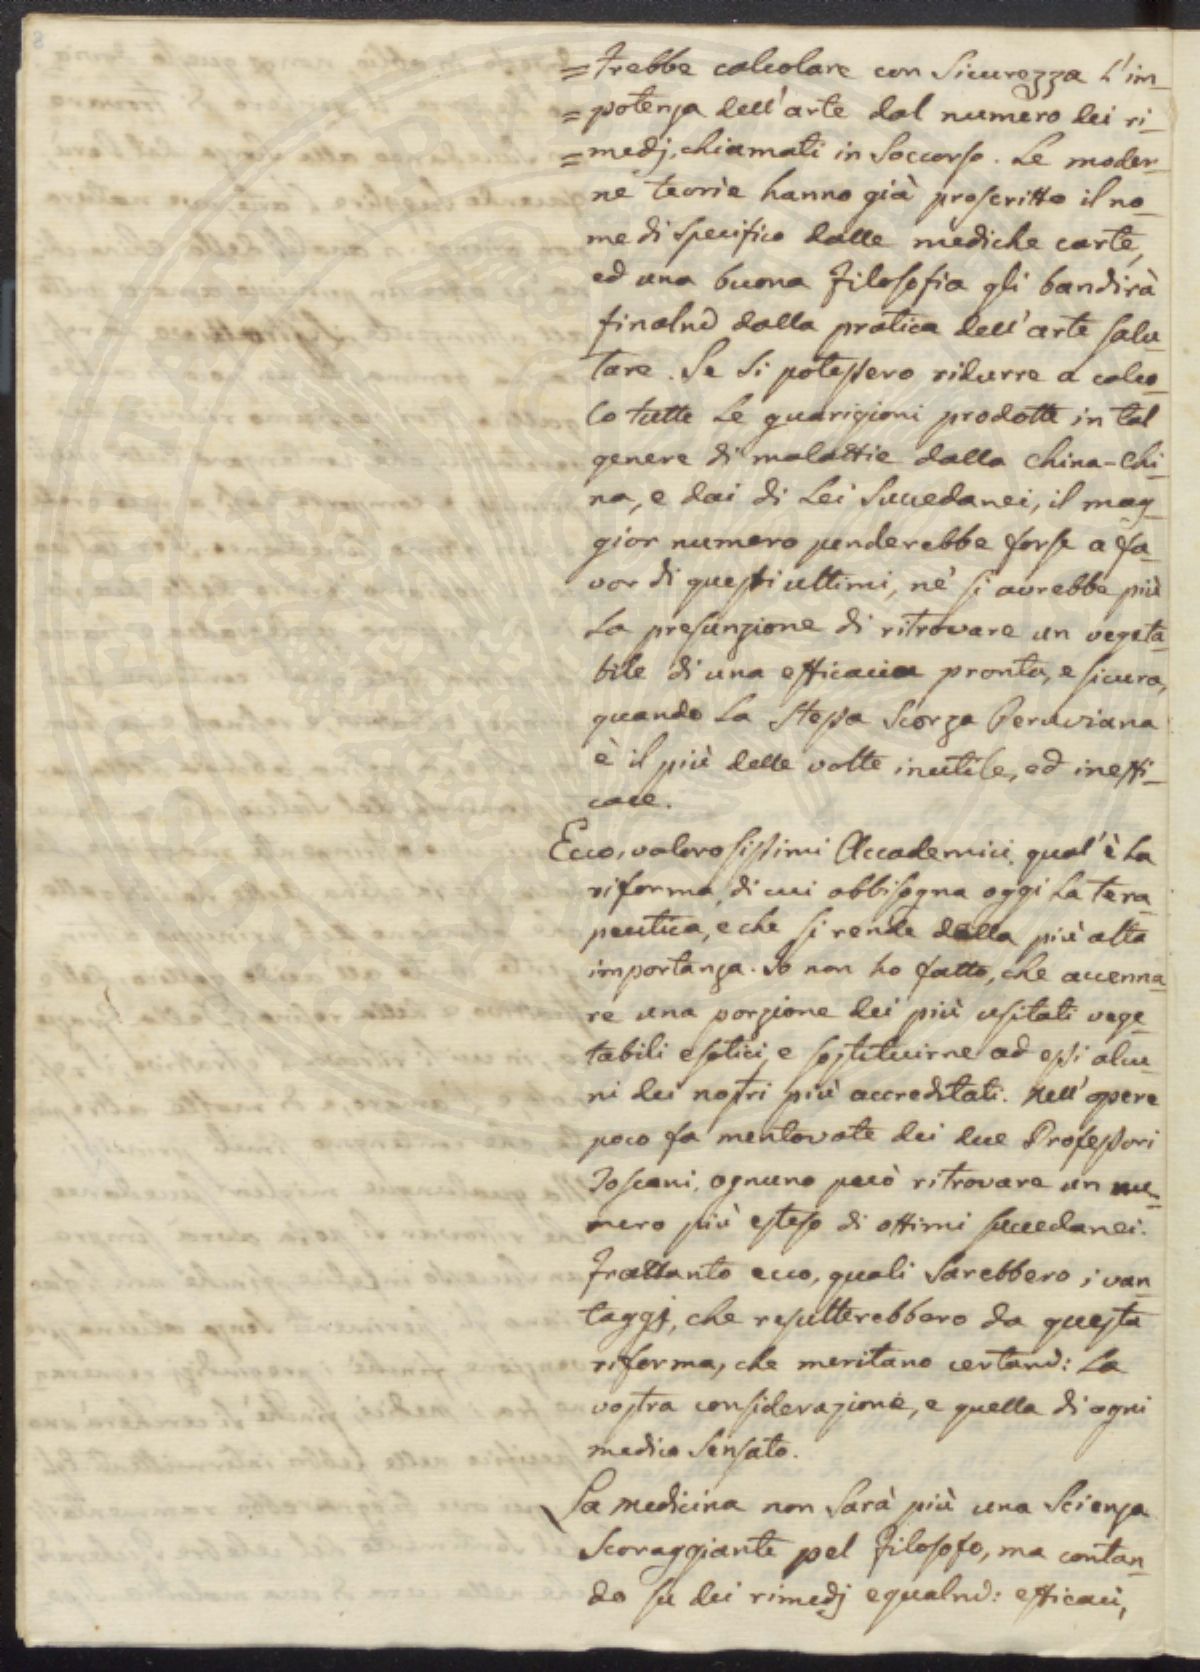 =trebbe calcolare con Sicurezza L'im_
=potenza dell'arte dal numero dei ri_
=medj, chiamati in Soccorso. Le moder_
ne teorìe hanno già proscritto il no_
me di specifico dalle mediche carte,
ed una buona Filosofia gli bandirà
finalnd dalla pratica dell'arte salu_
tare. Se Si potessero ridurre a calco_
lo tutte Le guarigioni prodotte in tal
genere di malattie dalla China-Chi_
na, e dai di Lei Succedanei, il mag_
gior numero penderebbe forse a fa_
vor di questi ultimi, nè si avrebbe più
La presunzione di ritrovare un vegeta_
bile di una efficacia pronta, e sicura,
quando La stessa Scorza Peruviana
è il più delle volte inutile, ed ineffi_
cace.
Ecco, valorosissimi Accademici, qual'è La
riforma, di cui abbisogna oggi La tera_
peutica, e che si rende della più alta
importanza. Io non ho fatto, che accenna_
re una porzione dei più usitati vege_
tabili esotici, e sostituirne ad essi alcu_
ni dei nostri più accreditati. Nell'opere
poco fa mentovate dei due Professori
Toscani, ognuno può ritrovare un nu_
mero più esteso di ottimi succedanei.
Frattanto ecco, quali Sarebbero i van_
taggj, che resulterebbero da questa
riforma, che meritano certand: La
vostra considerazione, e quella di ogni
medico Sensato.
La medicina non Sarà più una Scienza
Scoraggiante pel Filosofo, ma contan_
do su dei rimedj egualnd: efficaci,